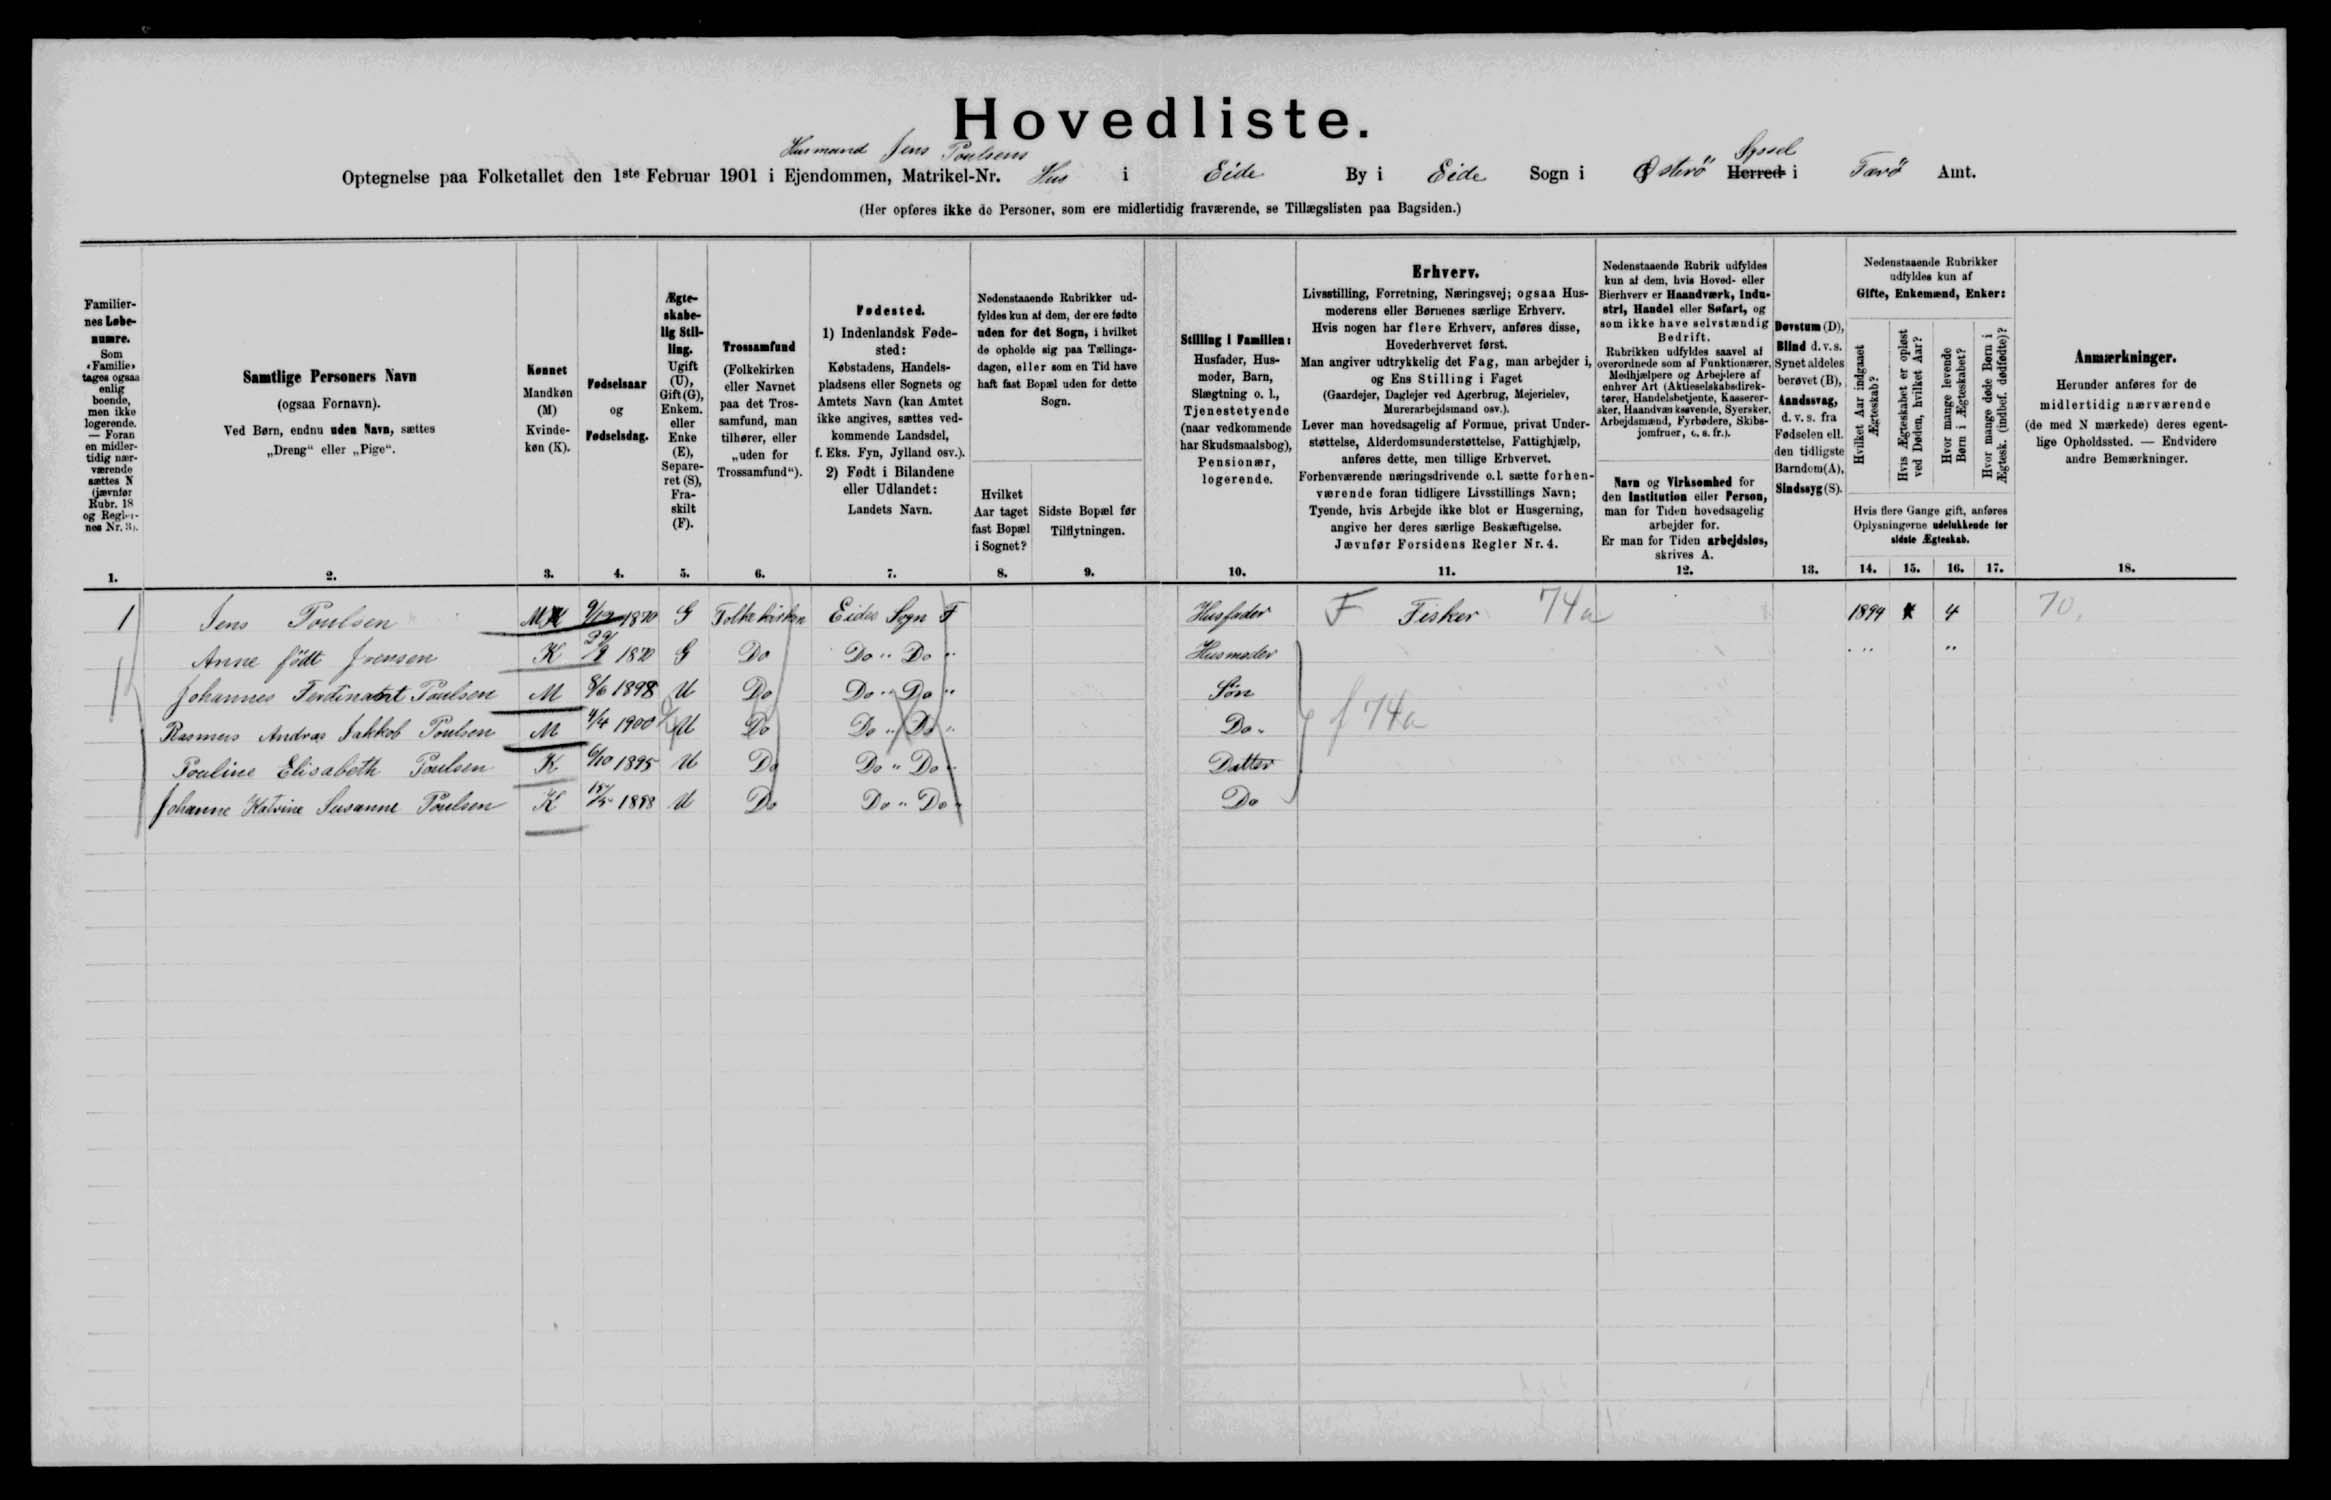 Hovedliste.
Husmand Jens Poulsens Syssel
Optegnelse paa Folketallet den 1ste Februar 1901 i Ejendommen, Matrikel-Nr. Hus i Eide By i Eide Sogn i Österö Herred i Færö Amt.
(Her opføres ikke de Personer, som ere midlertidig fraværende, se Tillægslisten paa Bagsiden.)
Familier-
nes Løbe-
numre.
Som
‹Familie›
tages ogsaa
enlig
boende,
men ikke
logerende.
— Foran
en midler-
tidig nær-
værende
sættes N
(jævnfør
Rubr. 18
og Regler-
nes Nr. 3).
1.
Samtlige Personers Navn
(ogsaa Fornavn).
Ved Børn, endnu uden Navn, sættes
„Dreng“ eller „Pige“.
2.
Kønnet
Mandkøn
(M)
Kvinde-
køn (K).
3.
Fødselsaar
og
Fødselsdag.
4.
Ægte-
skabe-
lig Stil-
ling.
Ugift
(U),
Gift (G),
Enkem.
eller
Enke
(E),
Separe-
ret (S),
Fra-
skilt
(F).
5.
Trossamfund
(Folkekirken
eller Navnet
paa det Tros-
samfund, man
tilhører, eller
„uden for
Trossamfund“).
6.
Fødested.
1) IndenlandskFøde-
sted:
Købstadens, Handels-
pladsens eller Sognets og
Amtets Navn (kan Amtet
ikke angives, sættes ved-
kommende Landsdel,
f. Eks. Fyn, Jylland osv.).
2) Født i Bilandene
eller Udlandet:
Landets Navn.
7.
Nedenstaaende Rubrikker ud-
fyldes kun af dem, der ere fødte
uden for det Sogn, i hvilket
de opholde sig paa Tællings-
dagen, eller som en Tid have
haft fast Bopæl uden for dette
Sogn.
Hvilket
Aar taget
fast Bopæl
i Sognet?
8.
Sidste Bopæl før
Tilflytningen.
9.
Stilling i Familien:
Husfader, Hus-
moder, Barn,
Slægtning o. l.,
Tjenestetyende
(naar vedkommende
har Skudsmaalsbog),
Pensionær,
logerende.
10.
Erhverv.
Livsstilling, Forretning, Næringsvej; ogsaa Hus-
moderens eller Børnenes særlige Erhverv.
Hvis nogen har flere Erhverv, anføres disse,
Hovederhvervet først.
Man angiver udtrykkelig det Fag, man arbejder i,
og Ens Stilling i Faget
(Gaardejer, Daglejer ved Agerbrug, Mejerielev,
Murerarbejdsmand osv.).
Lever man hovedsagelig af Formue, privat Under-
støttelse, Alderdomsunderstøttelse, Fattighjælp,
anføres dette, men tillige Erhvervet.
Forhenværende næringsdrivende o.l. sætte forhen-
værende foran tidligere Livsstillings Navn;
Tyende, hvis Arbejde ikke blot er Husgerning,
angive her deres særlige Beskæftigelse.
Jævnfør Forsidens Regler Nr. 4.
11.
Nedenstaaende Rubrik udfyldes
kun af dem, hvis Hoved- eller
Bierhverv er Haandværk, Indu-
stri, Handel eller Søfart, og
som ikke have selvstændig
Bedrift.
Rubrikken udfyldes saavel af
overordnede som af Funktionærer,
Medhjælpere og Arbejdere af
enhver Art (Aktieselskabsdirek-
tører, Handelsbetjente, Kasserer-
sker, Haandværksøvende, Syersker,
Arbejdsmænd, Fyrbødere, Skibs-
jomfruer, o. s. fr.).
Navn og Virksomhed for
den Institution eller Person,
man for Tiden hovedsagelig
arbejder for.
Er man for Tiden arbejdsløs,
skrives A.
12.
Døvstum (D),
Blind d. v. s.
Synet aldeles
berøvet (B),
Aandssvag,
d. v. s. fra
Fødselen ell.
den tidligste
Barndom (A),
Sindssyg (S).
13.
Nedenstaaende Rubrikker
udfyldes kun af
Gifte, Enkemænd, Enker:
Hvilket Aar indgaaet
Ægteskab?
Hvis Ægteskabet er opløst
ved Døden, hvilket Aar?
Hvor mange levende
Børn i Ægteskabet?
Hvor mange døde Børn i
Ægtesk. (indbef. dødfødte)?
Hvis flere Gange gift, anføres
Oplysningerne udelukkende for
sidste Ægteskab.
14. 15. 16. 17.
Anmærkninger.
Herunder anføres for de
midlertidig nærværende
(de med N mærkede) deres egent-
lige Opholdssted. — Endvidere
andre Bemærkninger.
18.
1 Jens Poulsen M 9/12 1870 G Folkekirken Eides Sogn F Husfader F Fisker 74a 1894 4 70.
Anne født Joensen K 29/9 1870 G Do Do " Do " Husmoder " "
Johannes Ferdinant Poulsen M 8/6 1898 U Do Do " Do " Søn
Rasmus Andras Jakkob Poulsen M 4/4 1900 U Do Do " Do " Do " f 74a
Pouline Elisabeth Poulsen K 6/10 1895 U Do Do " Do " Datter
Johanne Katrine Susanne Poulsen K 15/5 1898 U Do Do " Do " Do